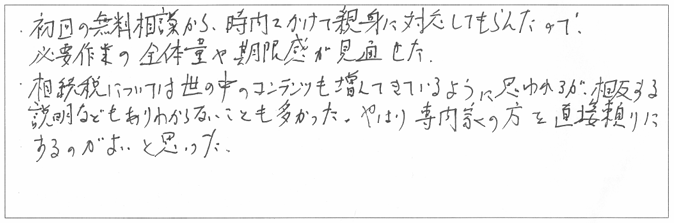 ・初回の無料相談から、時間をかけて親身に対応してもらえたので、
必要作業の全体量や期限感が見通せた。
・相続税については世の中のコンテンツも増えてきているように思われるが、相反する
説明などもありわからないことも多かった。やはり専門家の方を直接頼りに
するのがよいと思った。